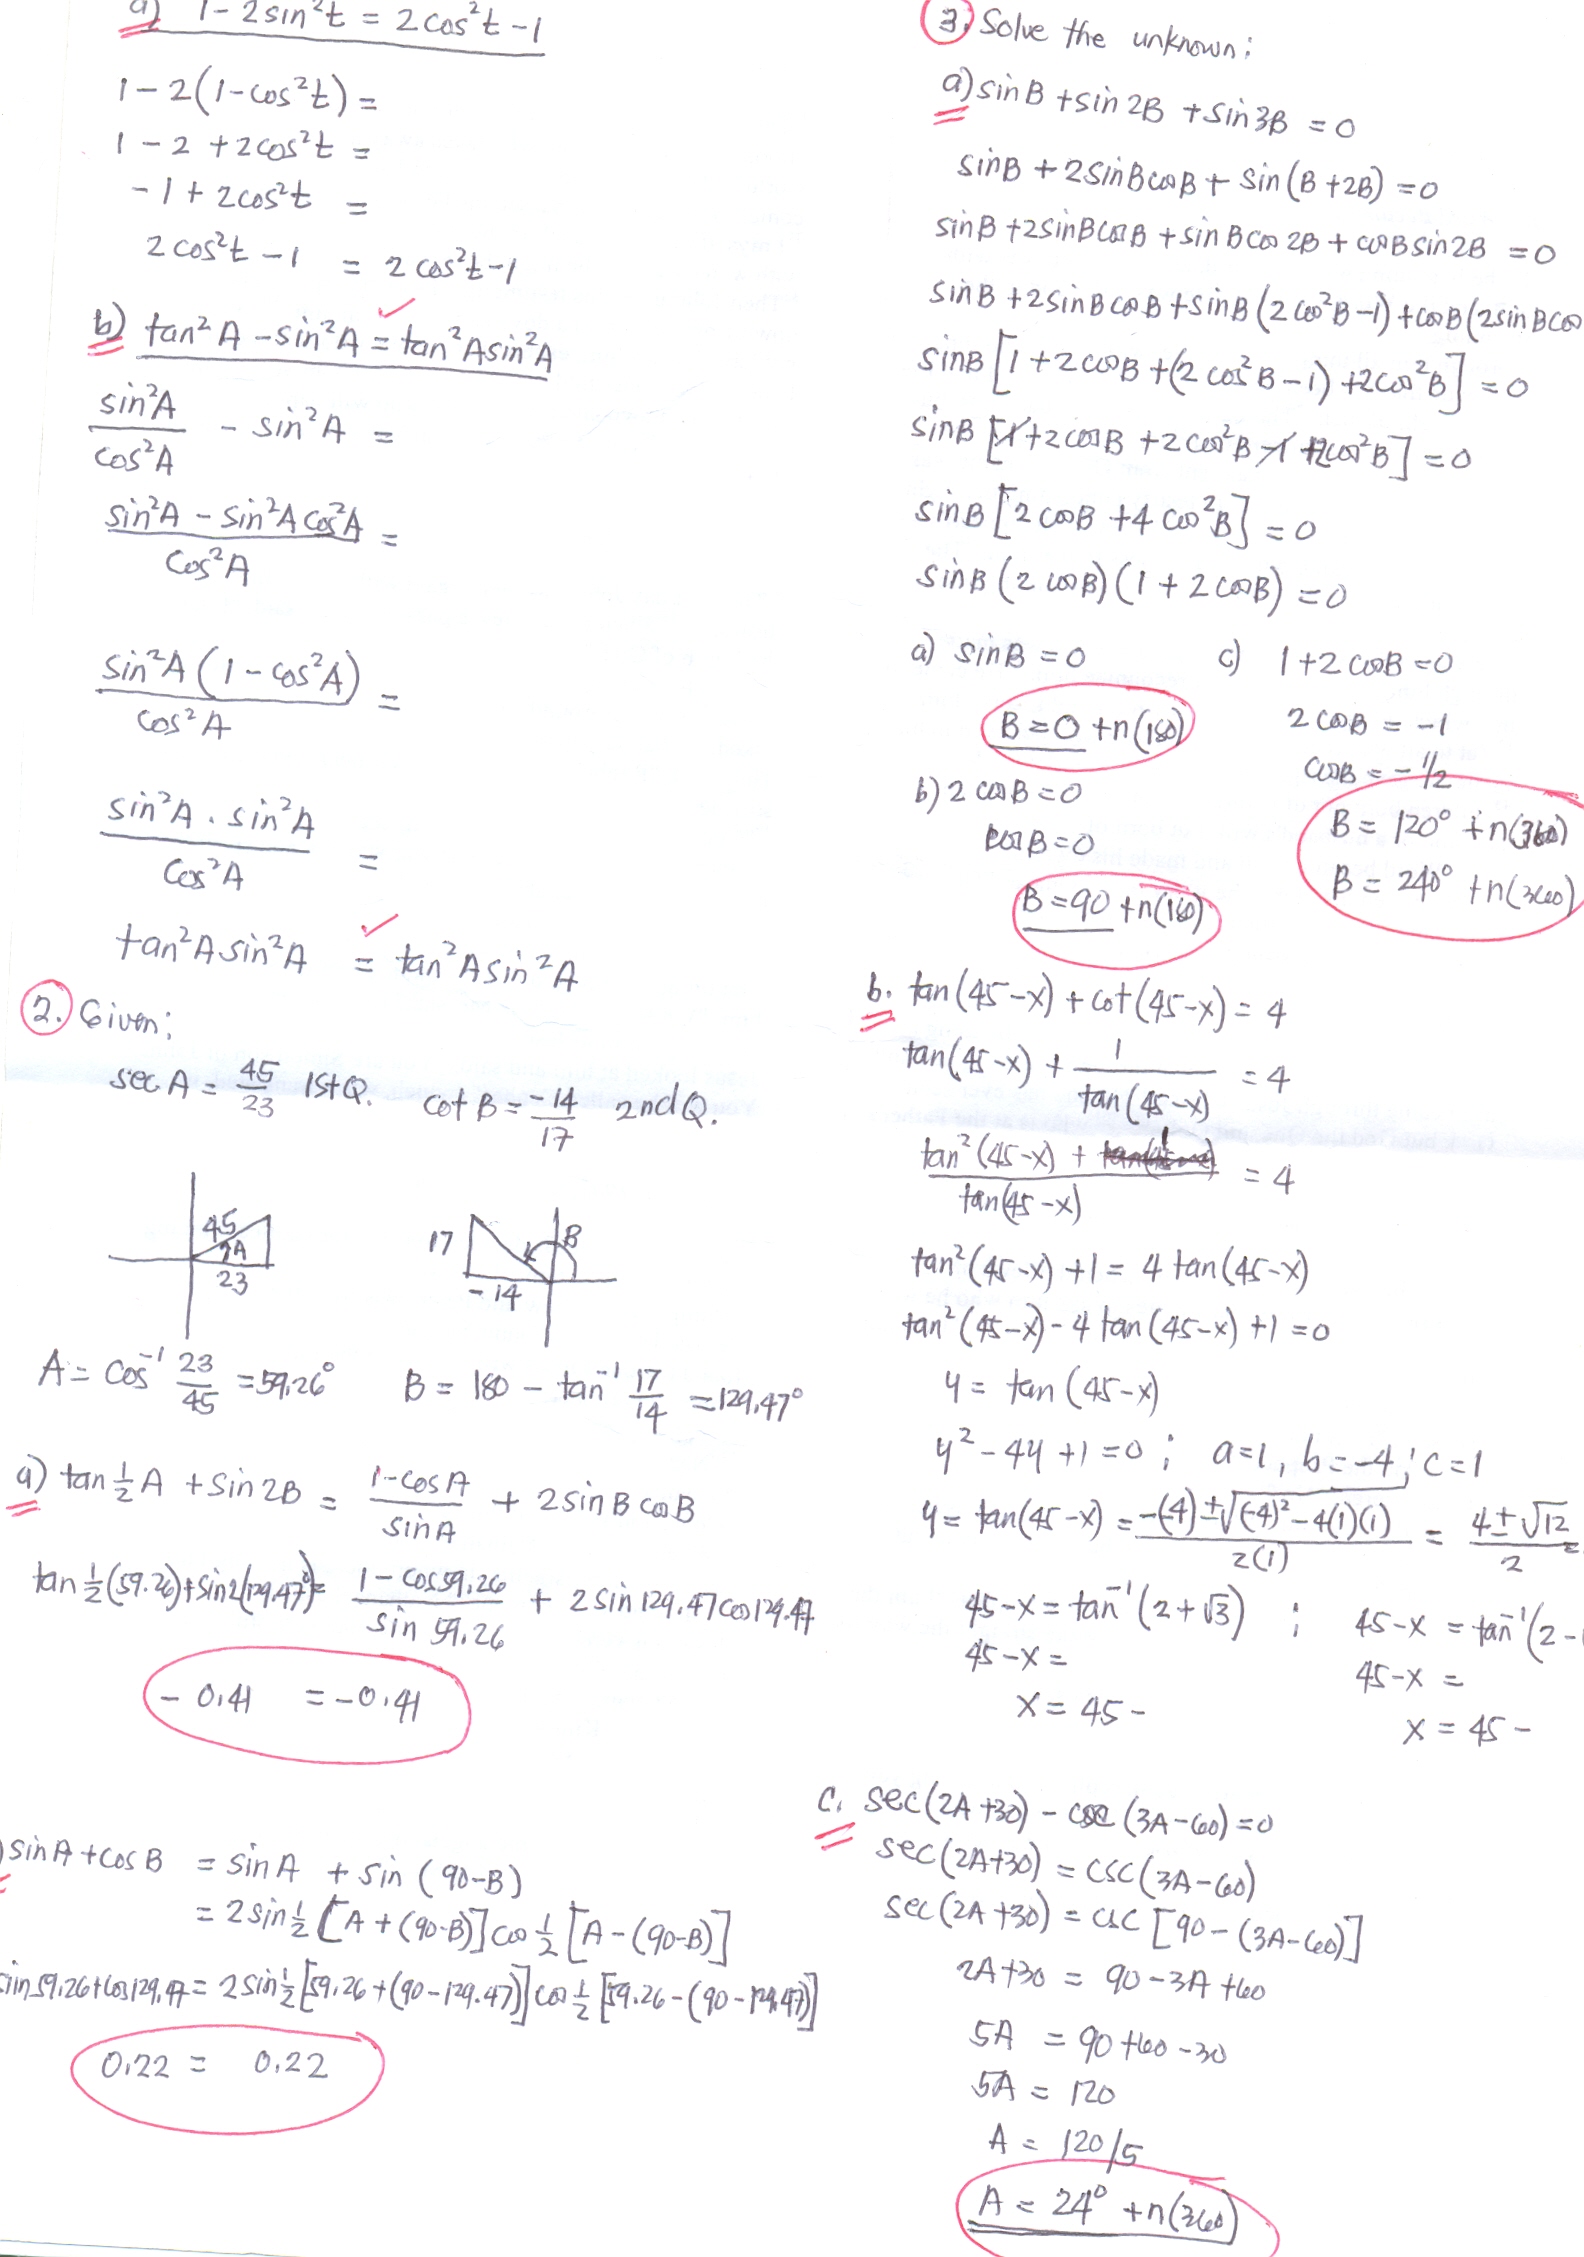 a) 1 - 2sin²t = 2cos²t - 1
1 - 2(1 - cos²t) =
1 - 2 + 2cos²t =
- 1 + 2cos²t =
2cos²t - 1 = 2cos²t - 1
b) tan²A - sin²A = tan²Asin²A
sin²A/cos²A - sin²A =
sin²A - sin²Acos²A/cos²A =
sin²A(1 - cos²A)/cos²A =
sin²A . sin²A/cos²A =
tan²Asin²A = tan²Asin²A
2. Given:
sec A = 45/23 1st Q. cot B = -14/17 2nd Q.
45 A 23
17 B -14
A = cos⁻¹ 23/45 = 59.26° B = 180 - tan⁻¹ 17/14 = 129.47°
a) tan ½ A + sin 2B = 1 - cos A/sin A + 2 sin B cos B
tan ½ (59.26) + sin 2(129.47) = 1 - cos 59.26/sin 59.26 + 2 sin 129.47 cos 129.47
- 0.41 = -0.41
) sin A + cos B = sin A + sin (90-B)
= 2 sin ½ [A + (90-B)] cos ½ [A - (90-B)]
sin 59.26 + cos 129.47 = 2 sin ½ [59.26 + (90 - 129.47)] cos ½ [59.26 - (90 - 129.47)]
0.22 = 0.22
3. Solve the unknown:
a) sin B + sin 2B + sin 3B = 0
sin B + 2 sin B cos B + sin (B + 2B) = 0
sin B + 2 sin B cos B + sin B cos 2B + cos B sin 2B = 0
sin B + 2 sin B cos B + sin B (2 cos²B - 1) + cos B (2 sin B cos
sin B [1 + 2 cos B + (2 cos²B - 1) + 2 cos²B] = 0
sin B [1 + 2 cos B + 2 cos²B - 1 + 2 cos²B] = 0
sin B [2 cos B + 4 cos²B] = 0
sin B (2 cos B) (1 + 2 cos B) = 0
a) sin B = 0
B = 0 + n(180)
b) 2 cos B = 0
cos B = 0
B = 90 + n(180)
c) 1 + 2 cos B = 0
2 cos B = -1
cos B = -1/2
B = 120° + n(360)
B = 240° + n(360)
b. tan (45-x) + cot (45-x) = 4
tan (45-x) + 1/tan (45-x) = 4
tan² (45-x) + 1/tan (45-x) = 4
tan² (45-x) + 1 = 4 tan (45-x)
tan² (45-x) - 4 tan (45-x) + 1 = 0
y = tan (45-x)
y² - 4y + 1 = 0 ; a=1, b=-4; c=1
y = tan (45-x) = -(-4) ± √(-4)² - 4(1)(1)/2(1) = 4 ± √12/2 =
45-x = tan⁻¹ (2+√3) ; 45-x = tan⁻¹ (2-
45-x = 45-x =
x = 45 - x = 45 -
c. sec (2A+30) - csc (3A-60) = 0
sec (2A+30) = csc (3A-60)
sec (2A+30) = csc [90 - (3A-60)]
2A+30 = 90 - 3A + 60
5A = 90 + 60 - 30
5A = 120
A = 120/5
A = 24° + n(360)